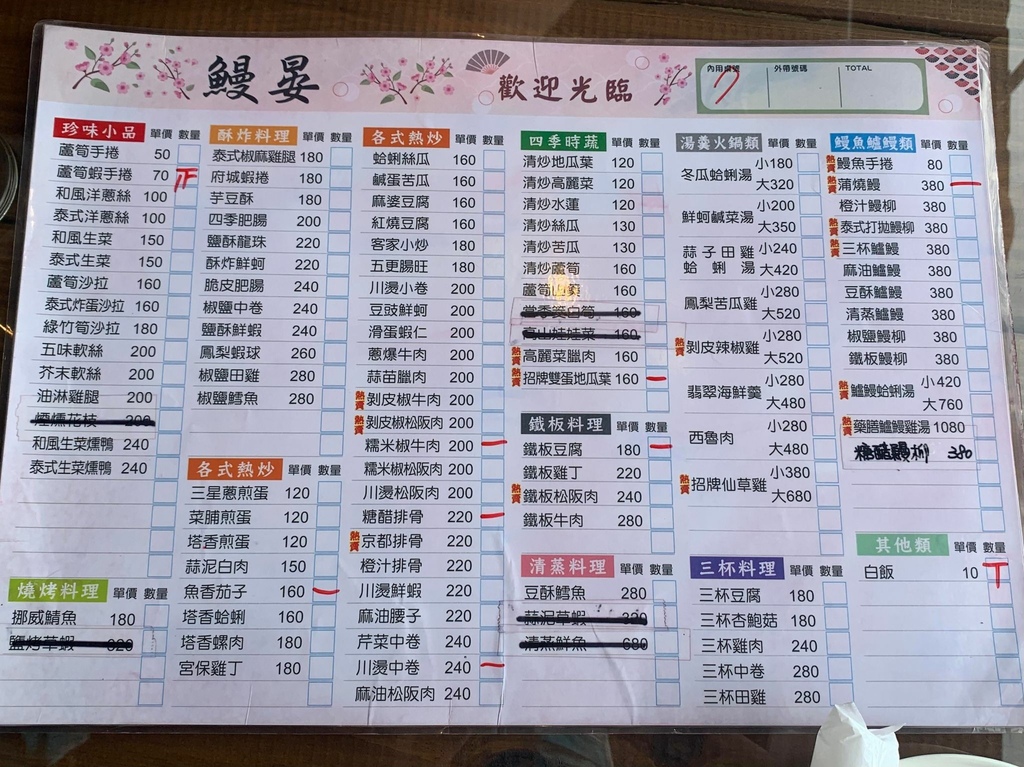 鰻晏
歡迎光臨
內用桌號 外帶號碼 TOTAL
7
珍味小品 單價 數量
蘆筍手捲 50
蘆筍蝦手捲 70
和風洋蔥絲 100
泰式洋蔥絲 100
和風生菜 150
泰式生菜 150
蘆筍沙拉 160
泰式炸蛋沙拉 160
綠竹筍沙拉 180
五味軟絲 200
芥末軟絲 200
油淋雞腿 200
煙燻花枝 200
和風生菜燻鴨 240
泰式生菜燻鴨 240
燒烤料理 單價 數量
挪威鯖魚 180
鹽烤草蝦 320
酥炸料理 單價 數量
泰式椒麻雞腿 180
府城蝦捲 180
芋豆酥 180
四季肥腸 200
鹽酥龍珠 220
酥炸鮮蚵 220
脆皮肥腸 240
椒鹽中卷 240
鹽酥鮮蝦 240
鳳梨蝦球 260
椒鹽田雞 280
椒鹽鱈魚 280
各式熱炒 單價 數量
三星蔥煎蛋 120
菜脯煎蛋 120
塔香煎蛋 120
蒜泥白肉 150
魚香茄子 160
塔香蛤蜊 160
塔香螺肉 180
宮保雞丁 180
各式熱炒 單價 數量
蛤蜊絲瓜 160
鹹蛋苦瓜 160
麻婆豆腐 160
紅燒豆腐 160
客家小炒 180
五更腸旺 180
川燙小卷 200
豆豉鮮蚵 200
滑蛋蝦仁 200
蔥爆牛肉 200
蒜苗臘肉 200
熱賣 剝皮椒牛肉 200
熱賣 剝皮椒松阪肉 200
糯米椒牛肉 200
糯米椒松阪肉 200
川燙松阪肉 200
糖醋排骨 220
熱賣 京都排骨 220
橙汁排骨 220
川燙鮮蝦 220
麻油腰子 220
芹菜中卷 240
川燙中卷 240
麻油松阪肉 240
四季時蔬 單價 數量
清炒地瓜葉 120
清炒高麗菜 120
清炒水蓮 120
清炒絲瓜 130
清炒苦瓜 130
清炒蘆筍 160
蘆筍山藥 160
當季筊白筍 160
高山娃娃菜 160
熱賣 高麗菜臘肉 160
熱賣 招牌雙蛋地瓜葉 160
鐵板料理 單價 數量
鐵板豆腐 180
鐵板雞丁 220
熱賣 鐵板松阪肉 240
鐵板牛肉 280
清蒸料理 單價 數量
豆酥鱈魚 280
蒜泥草蝦 320
清蒸鮮魚 680
湯羹火鍋類 單價 數量
冬瓜蛤蜊湯 小180
大320
鮮蚵鹹菜湯 小200
大350
蒜子田雞 小240
蛤蜊湯 大420
鳳梨苦瓜雞 小280
大520
熱賣 剝皮辣椒雞 小280
大520
翡翠海鮮羹 小280
大480
西魯肉 小280
大480
熱賣 招牌仙草雞 小380
大680
三杯料理 單價 數量
三杯豆腐 180
三杯杏鮑菇 180
三杯雞肉 240
三杯中卷 280
三杯田雞 280
鰻魚鱸鰻類 單價 數量
熱賣 鰻魚手捲 80
熱賣 蒲燒鰻 380
橙汁鰻柳 380
熱賣 泰式打拋鰻柳 380
熱賣 三杯鱸鰻 380
麻油鱸鰻 380
豆酥鱸鰻 380
清蒸鱸鰻 380
椒鹽鰻柳 380
鐵板鰻柳 380
熱賣 鱸鰻蛤蜊湯 小420
大760
熱賣 藥膳鱸鰻雞湯 1080
糖醋鰻柳 380
其他類 單價 數量
白飯 10